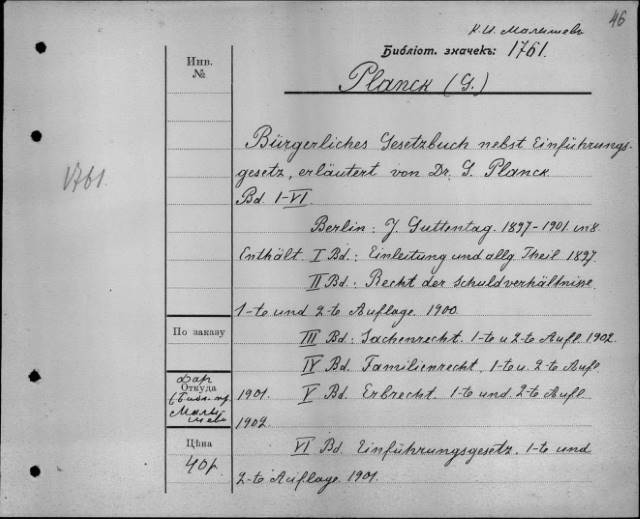 46
К. И. Малышевъ
Библіот. значекъ: 1761.
Инв.
№
Planck (G.)
Bürgerliches Gesetzbuch nebst Einführungs-
gesetz, erläutert von Dr. G. Planck
Bd. 1-VI.
1761.
Berlin: J. Guttentag. 1897-1901. in 8.
Enthält. I Bd.: Einleitung und allg. Theil 1897.
II Bd.: Recht der Schuldverhältnisse
1-te und 2-te Auflage. 1900.
По заказу
III Bd.: Sachenrecht. 1-te u 2-te Aufl. 1902.
IV Bd. Familienrecht. 1-te u. 2-te Aufl.
Откуда
Дар
Малы
шев
1901. V Bd. Erbrecht. 1-te und 2-te Aufl
1902.
Цѣна
40р.
VI Bd. Einführungsgesetz. 1-te und
2-te Auflage 1901.